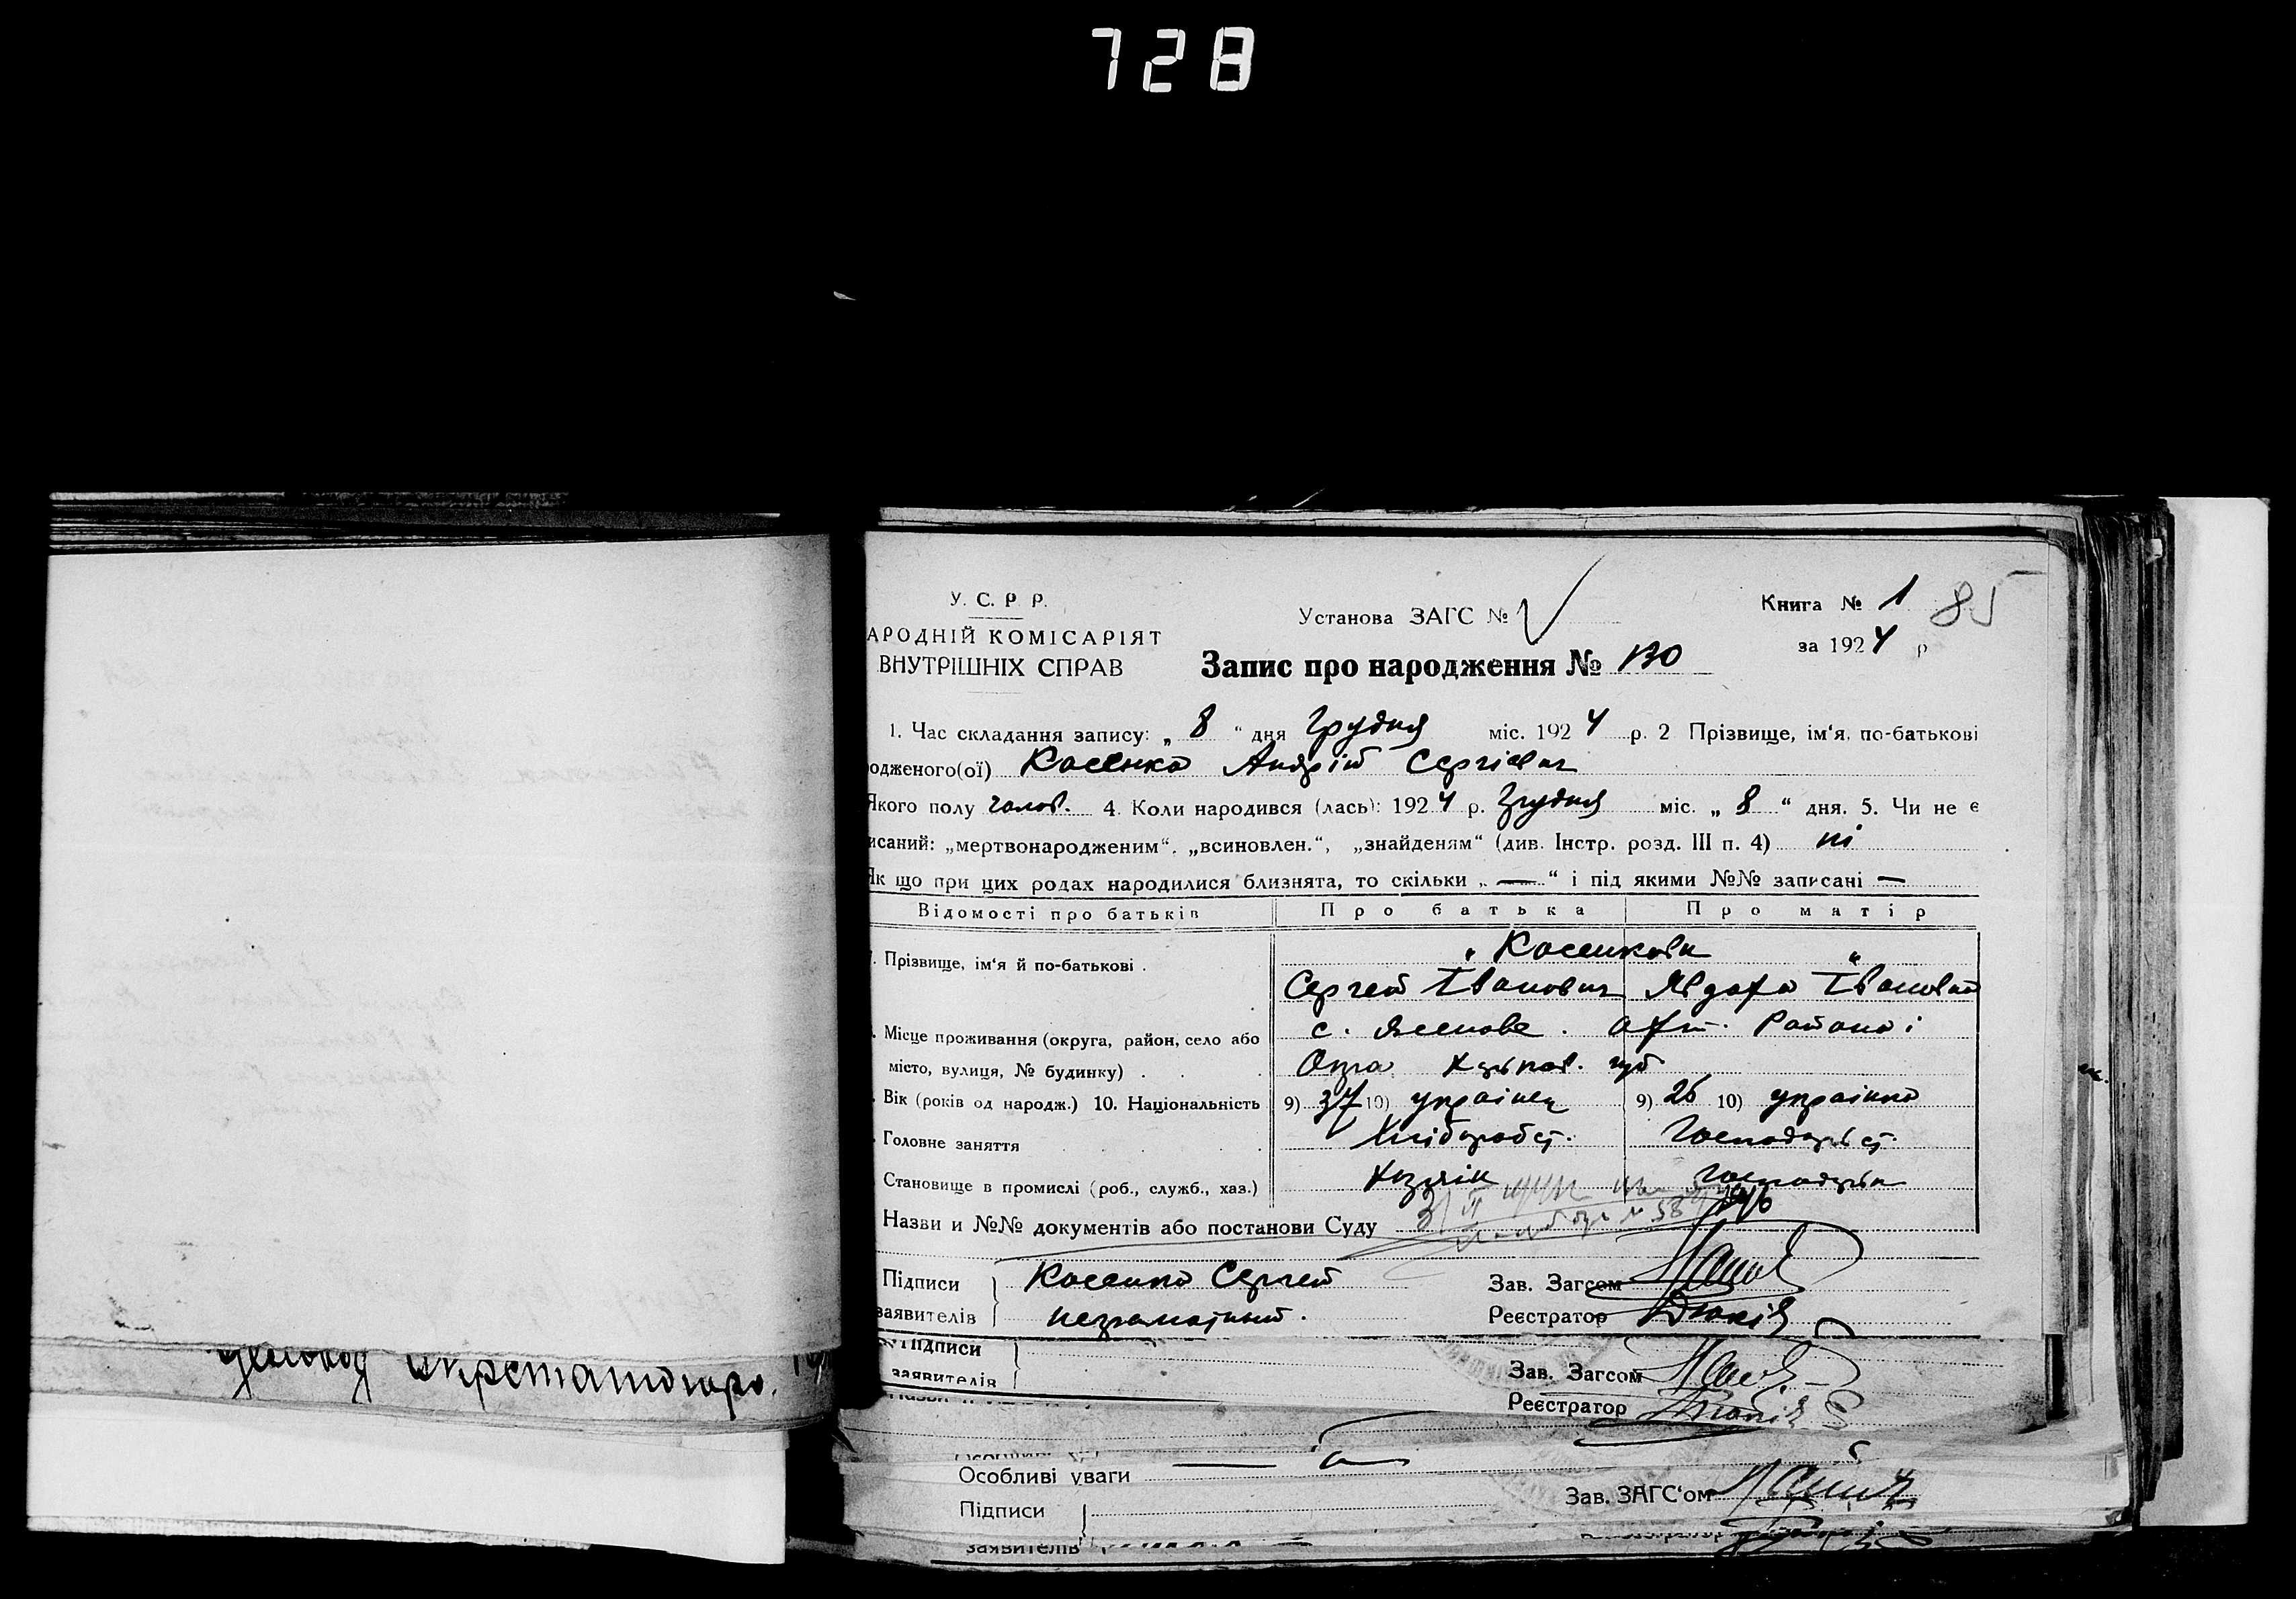 728
У. С. Р Р.
АРОДНІЙ КОМІСАРІЯТ
ВНУТРІШНІХ СПРАВ
Установа ЗАГС №
Книга № 1 85
за 1924 р
Запис про народження № 130
1. Час складання запису: „ 8 “ дня Грудня міс. 1924 р. 2 Прізвище, ім'я, по-батькові
одженого(ої) Косенко Андрій Сергієвич
Якого полу чолов. 4. Коли народився (лась): 1924 р. Грудня міс. „ 8 “ дня. 5. Чи не є
исаний: „мертвонародженим“, „всиновлен.“, „знайденям“ (див. Інстр. розд. III п. 4) ні
Як що при цих родах народилися близнята, то скільки „ — “ і під якими №№ записані —
Відомості про батьків Про батька Про матір
. Прізвище, ім'я й по-батькові . „ Косенкови „
Сергей Іванович Явдоха Івановна
. Місце проживання (округа, район, село або с. Ясенове . Району і
місто, вулиця, № будинку) . . губ
. Вік (років од народж.) 10. Національність 9) 37 10) українец 9) 26 10) українка
. Головне заняття Хліборобст. Господарьст.
Становище в промислі (роб., служб., хаз.) Хозяїн господарка
Назви и №№ документів або постанови Суду
Підписи Косенко Сергей Зав. Загсом
заявителів неграмотний. Реєстратор
Підписи
заявителів
Зав. Загсом
Реєстратор
Особливі уваги
Підписи
заявителів
Зав. ЗАГС'ом